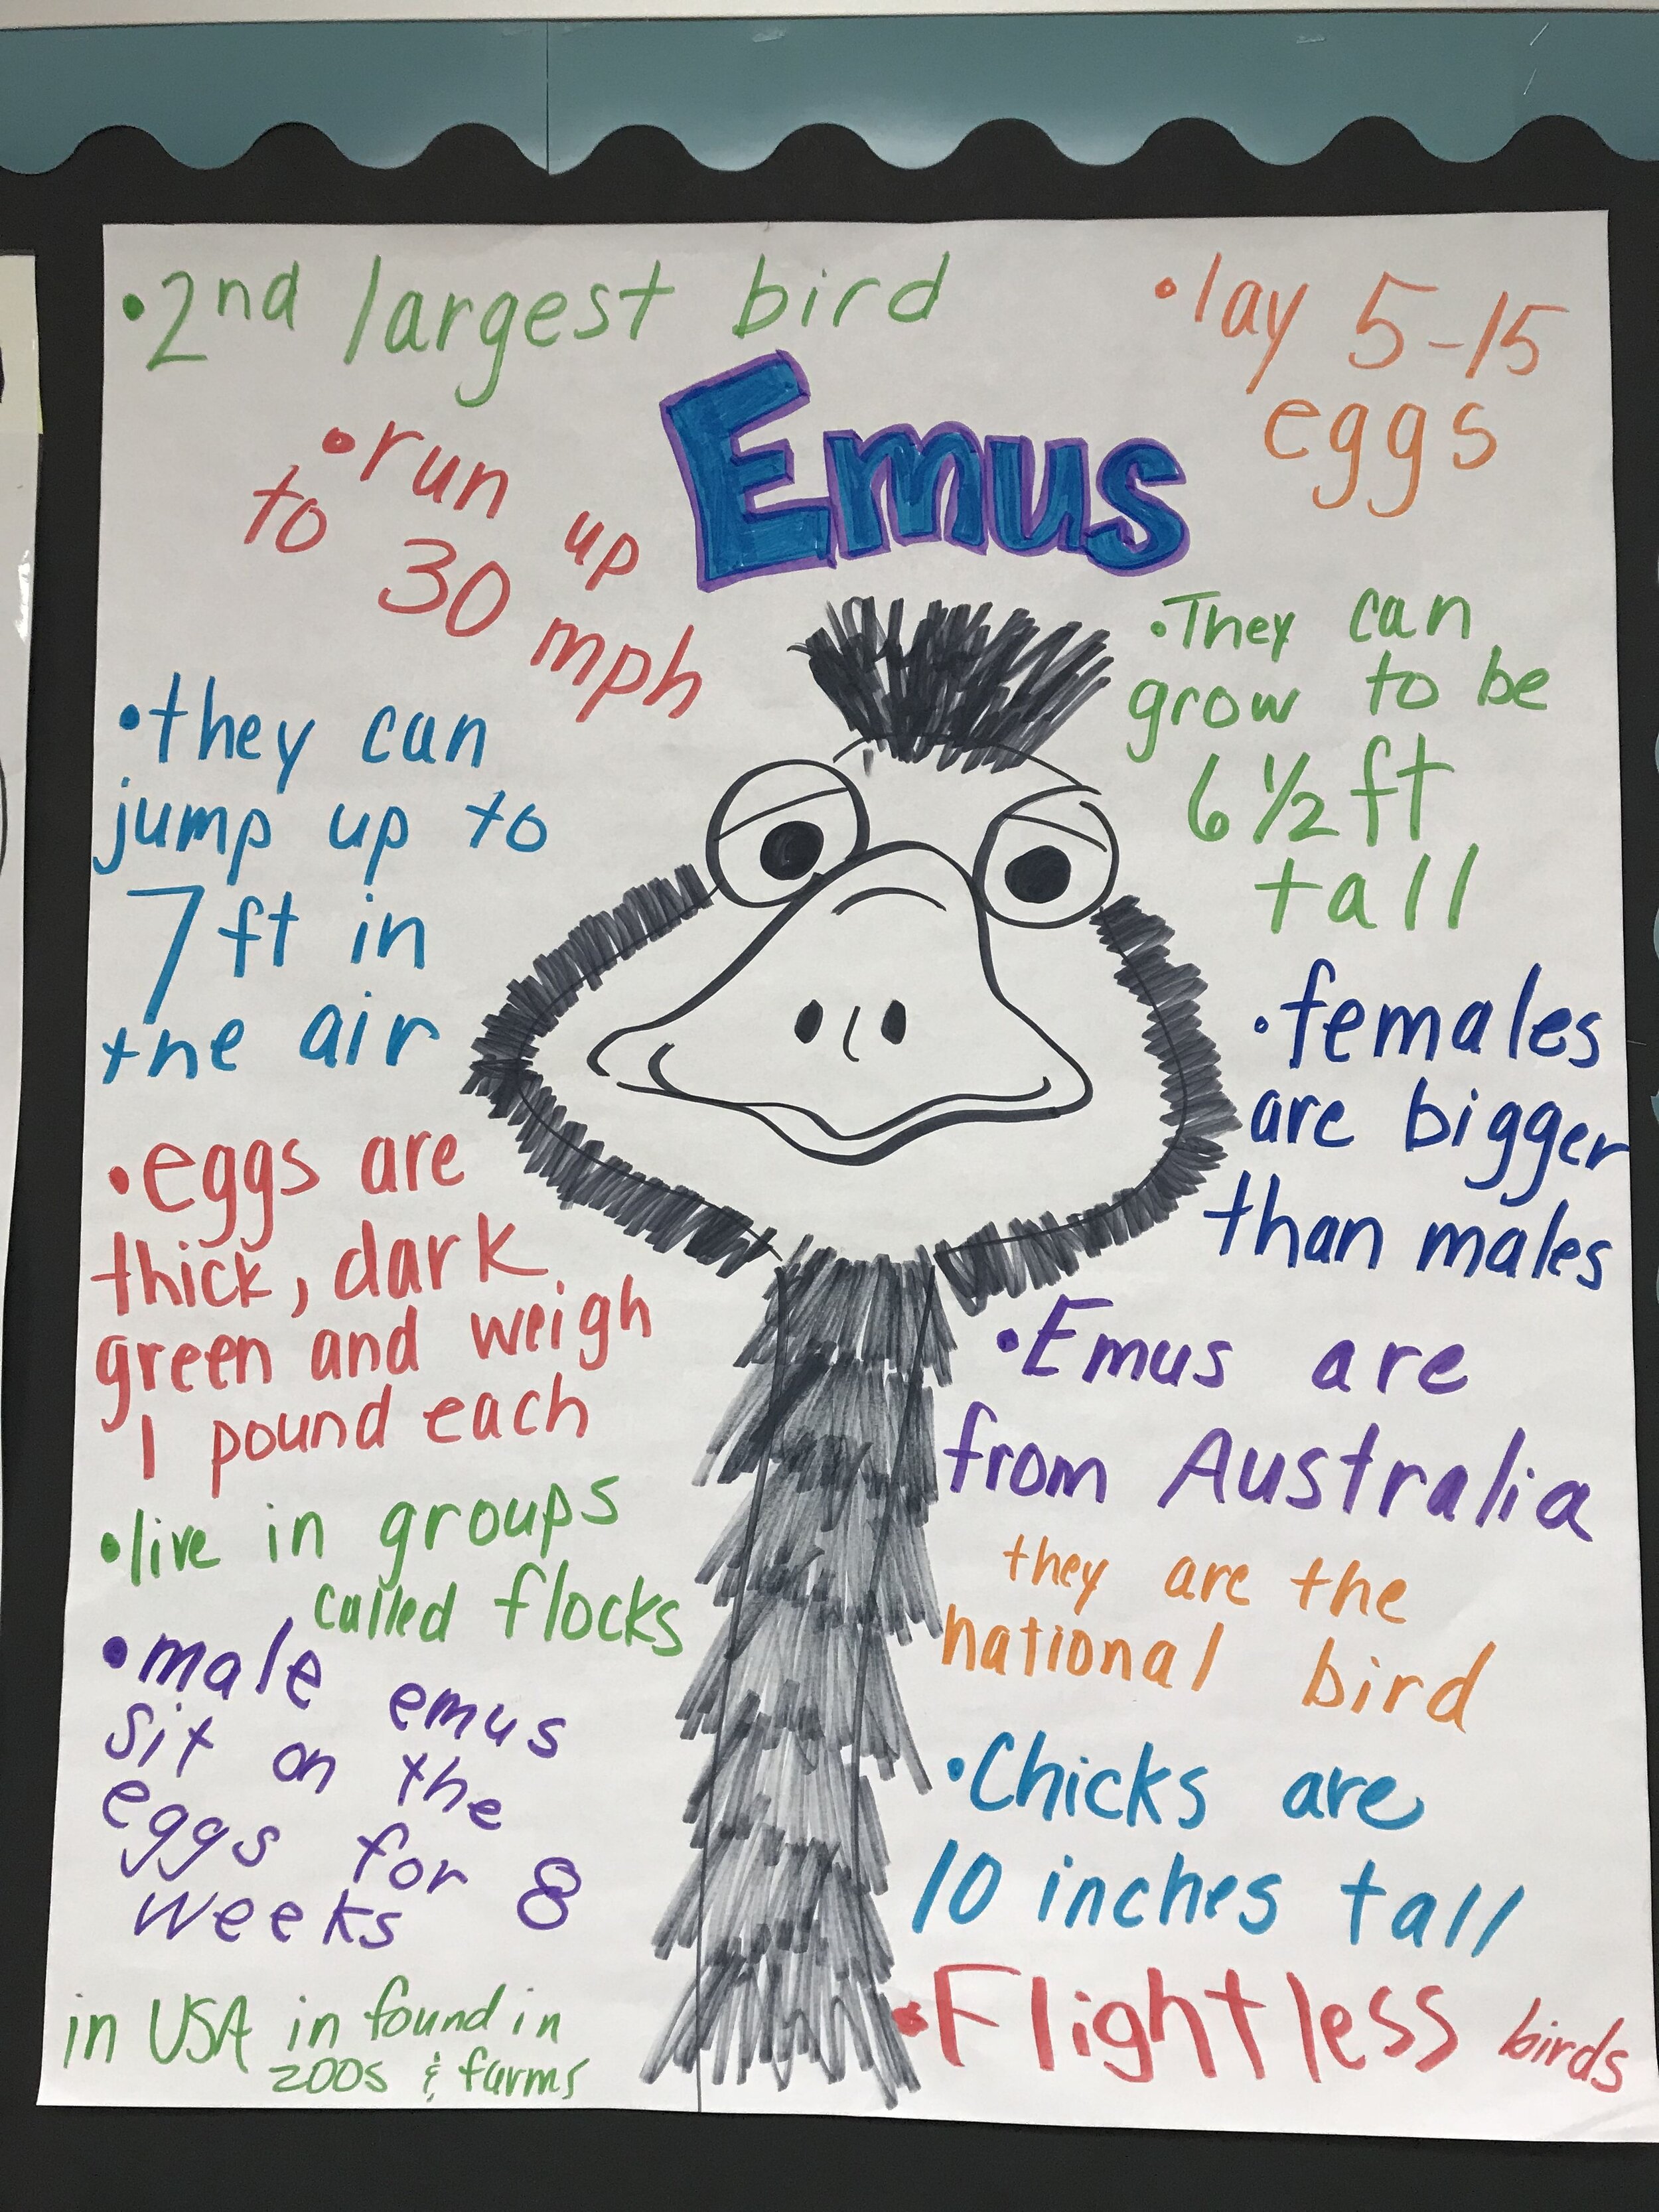 •2nd largest bird
•lay 5-15
eggs
Emus
•run up
to 30 mph
•They can
grow to be
6 1/2 ft
tall
•they can
jump up to
7 ft in
the air
•females
are bigger
than males
•eggs are
thick, dark
green and weigh
1 pound each
•Emus are
from Australia
they are the
national bird
•live in groups
called flocks
•male emus
sit on the
eggs for 8
weeks
•Chicks are
10 inches tall
in USA in found in
zoos & farms
•Flightless birds